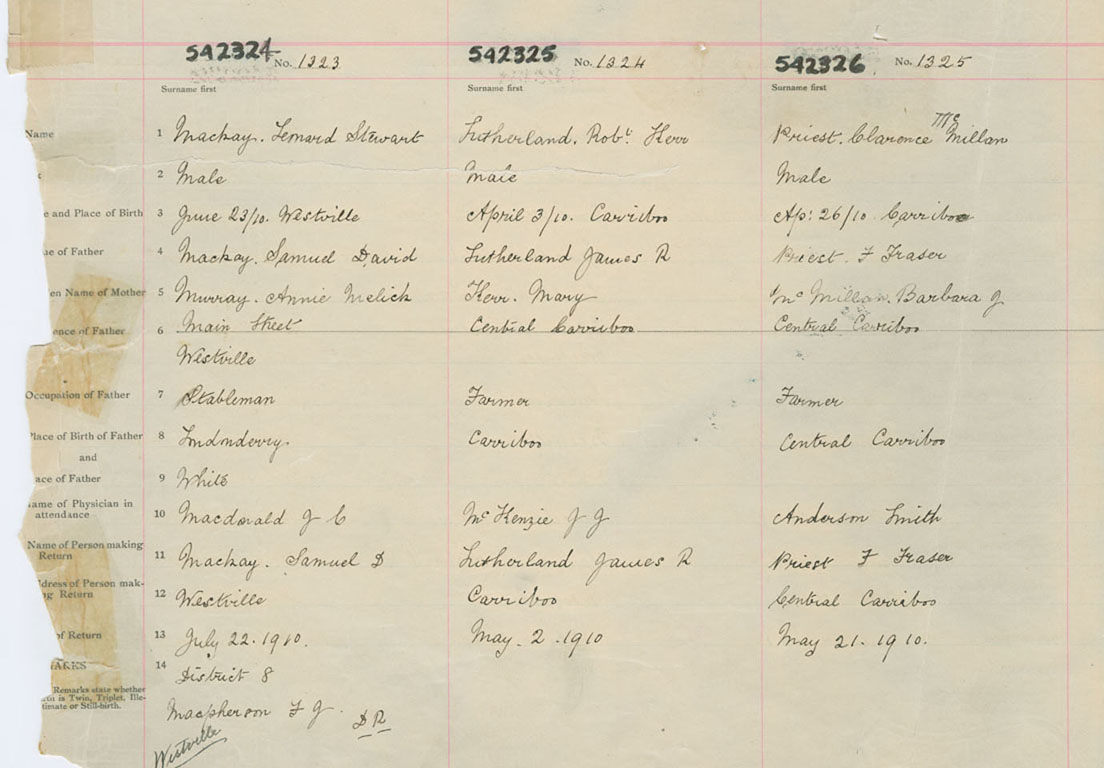 542324 No. 1323 542325 No. 1324 542326 No. 1325
Surname first Surname first Surname first
Name 1 Mackay. Lenard Stewart Sutherland. Robt. Kerr Priest. Clarence McMillan
2 Male Male Male
e and Place of Birth 3 June 23/10. Westville April 3/10. Carriboo Ap: 26/10 Carriboo
e of Father 4 Mackay. Samuel David Sutherland James R Priest. F Fraser
en Name of Mother 5 Murray. Annie Melick Kerr. Mary Mc Millan. Barbara J
ence of Father 6 Main Street Central Carriboo Central Carriboo
Westville
Occupation of Father 7 Stableman Farmer Farmer
Place of Birth of Father 8 Londonderry. Carriboo Central Carriboo
and
ace of Father 9 White
ame of Physician in
attendance 10 Macdonald J C McKenzie J J Anderson Smith
Name of Person making
Return 11 Mackay. Samuel D Sutherland James R Priest F Fraser
dress of Person mak-
ng Return 12 Westville Carriboo Central Carriboo
of Return 13 July 22. 1910. May. 2. 1910 May 21. 1910.
ARKS 14 District 8
Remarks state whether
rth is Twin, Triplet, Ille-
timate or Still-birth.
Macpherson F G. DR
Westville